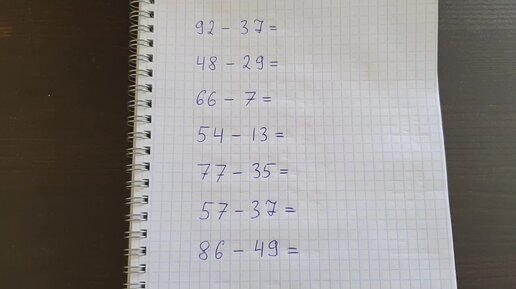 92 - 37 =
48 - 29 =
66 - 7 =
54 - 13 =
77 - 35 =
57 - 37 =
86 - 49 =